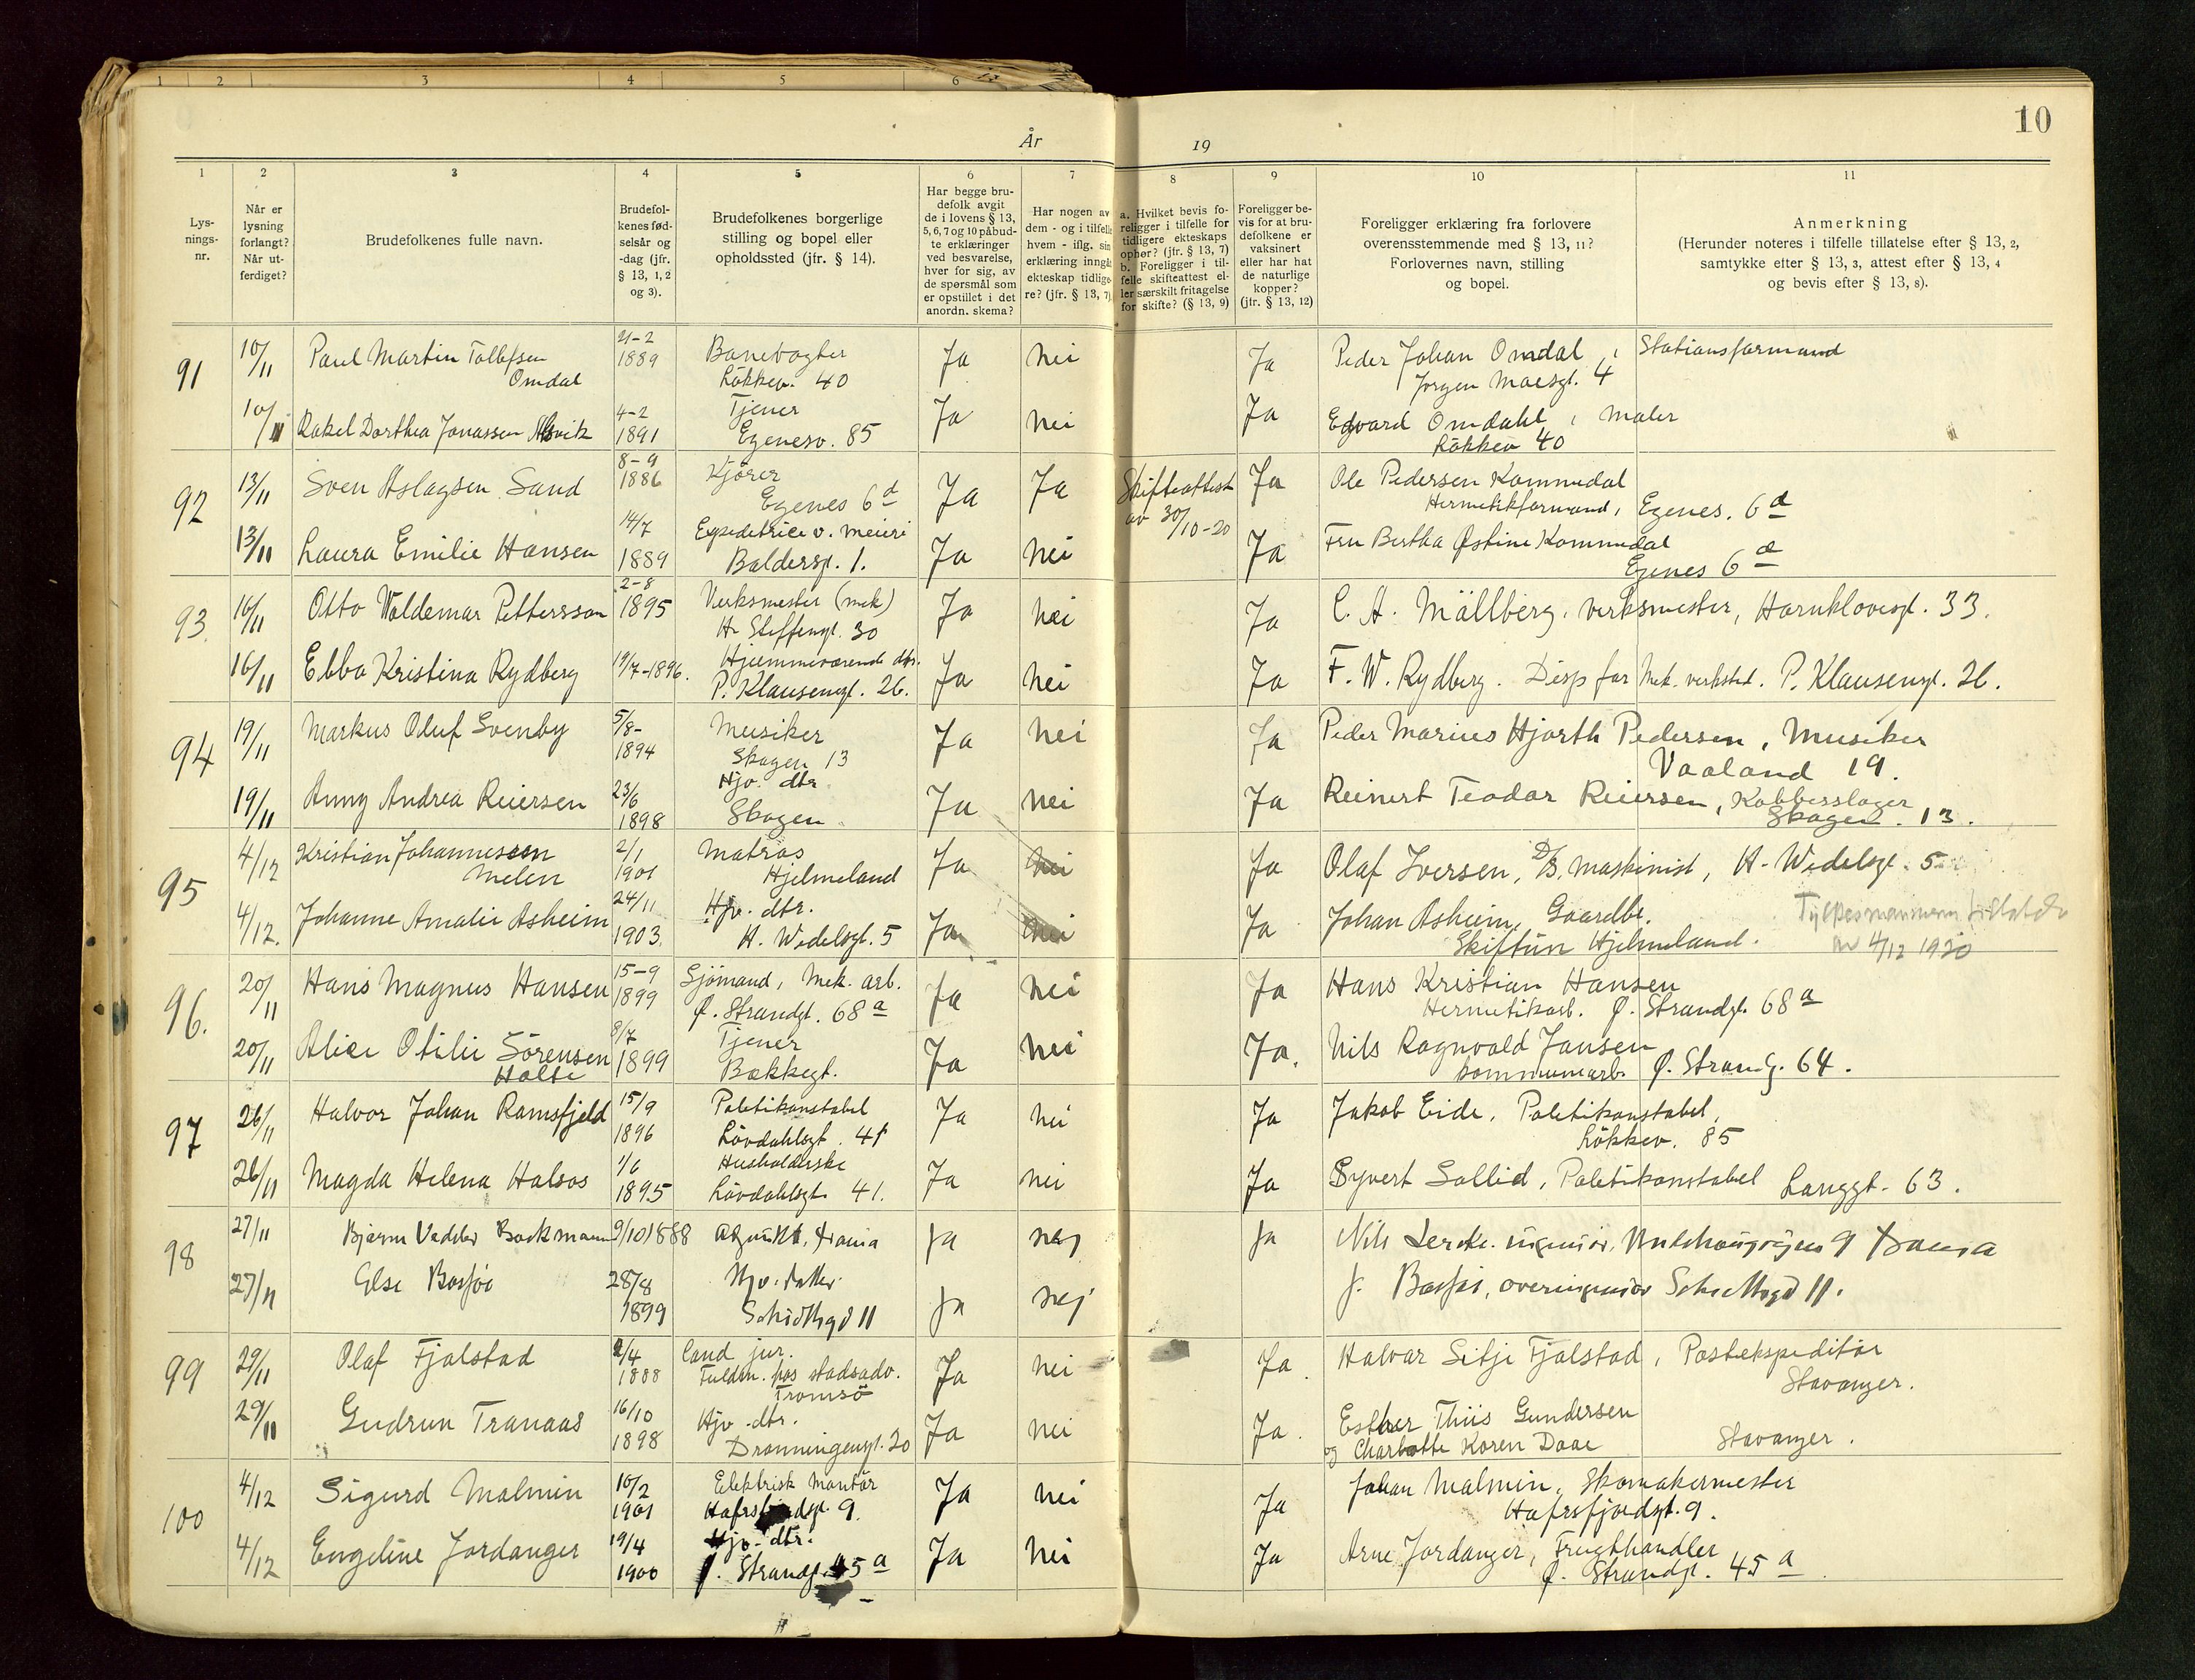 1 2 3 4 5 6
10
År 19
1 2 3 4 5 6 7 8 9 10 11
Lys-
nings-
nr.
Når er
lysning
forlangt?
Når ut-
ferdiget?
Brudefolkenes fulle navn.
Brudefol-
kenes fød-
selsår og
-dag (jfr.
§ 13, 1, 2
og 3).
Brudefolkenes borgerlige
stilling og bopel eller
opholdssted (jfr. § 14).
Har begge bru-
defolk avgit
de i lovens § 13,
5, 6, 7 og 10 påbud-
te erklæringer
ved besvarelse,
hver for sig, av
de spørsmål som
er opstillet i det
anordn. skema?
Har nogen av
dem - og i tilfelle
hvem - iflg. sin
erklæring inngå
ekteskap tidlige-
re? (jfr. § 13, 7)
a. Hvilket bevis fo-
religger i tilfelle for
tidligere ekteskaps
ophør? (jfr. § 13, 7)
b. Foreligger i til-
felle skifteattest el-
ler særskilt fritagelse
for skifte? (§ 13, 9)
Foreligger be-
vis for at bru-
defolkene er
vaksinert
eller har hat
de naturlige
kopper?
(jfr. § 13, 12)
Foreligger erklæring fra forlovere
overensstemmende med § 13, 11?
Forlovernes navn, stilling
og bopel.
Anmerkning
(Herunder noteres i tilfelle tillatelse efter § 13, 2,
samtykke efter § 13, 3, attest efter § 13, 4
og bevis efter § 13, 8).
91 10/11 Paul Martin Tollefsen Omdal 21-2 1889 Banevogter Løkkev. 40 Ja Nei Ja Peder Johan Omdal, Stationsformand Jørgen Moesgt. 4
10/11 Rakel Dorthea Jonassen 4-2 1891 Tjener Egenesv. 85 Ja Nei Ja Edvard Omdahl, Maler Løkkev 40
92 13/11 Sven Aslagsen Sand 8-9 1886 Kjører Egenes 6d Ja Ja Skifteattest av 30/10-20 Ja Ole Pedersen Kommedal Hermetikformand, Egenes. 6d
13/11 Laura Emilie Hansen 14/7 1889 Expeditrice v. meieri Baldersgt. 1. Ja Nei Ja Fru Bertha Østine Kommedal Egenes 6d
93 16/11 Otto Valdemar Pettersson 2-8 1895 Verksmester (mek) H. Steffengt. 30 Ja Nei Ja C. A. Mällberg, verksmester, Haraklovesgt. 33.
16/11 Ebba Kristina Rydberg 19/7-1896. Hjemmeværende dtr. P. Klausengt. 26. Ja Nei Ja F. W. Rydberg. Disp for Mek. verksted. P. Klausengt. 26.
94 19/11 Markus Oluf Svenby 5/8- 1894 Musiker Skagen 13 Ja Nei Ja Peder Marius Hjorth Pedersen, Musiker Vaaland 19.
19/11 Anny Andrea Reiersen 23/6 1898 Hjv. dtr Skagen Ja Nei Ja Reinert Teodor Reiersen, Kobberslager Skagen. 13.
95 4/12 Kristian Johannessen Melen 2/1 1901 Matros Hjelmeland Ja Nei Ja Olaf Iversen, D/S. Maskinist, H. Wedelsgt. 5
4/12. Johanne Amalie Asheim 24/11 1903. Hjv. dtr. H. Wedelsgt. 5 Ja Nei Ja Johan Asheim, Gaardbr. Skiftun Hjelmeland. Fylkesmannens tillatelse av 4/12 1920
96. 20/11 Hans Magnus Hansen 15-9 1899 Sjømand, Mek. arb. Ø. Strandgt. 68a Ja Nei Ja Hans Kristian Hansen Hermetikarb. Ø. Strandgt. 68a
20/11 Alice Otilie Sørensen Holte 8/7 1899 Tjener Bakkegt. Ja Nei Ja. Nils Ragnvald Jansen kommunearb. Ø. Strandg. 64.
97 26/11 Halvor Johan Ramsfjeld 15/9 1896 Politikonstabel Løvdahlsgt. 41 Ja Nei Ja Jakob Eide, Politikonstabel, Løkkev. 85
26/11 Magda Helena Halsos 1/6 1895 Husholderske Løvdahlsgt. 41. Ja Nei Ja Syvert Sollid, Politikonstabel Langgt. 63.
98 27/11 Bjarne Vedeler Bockmann 9/10 1888 Ja nej Ja Nils Lerche. ingeniør,
27/11 Else Bosføe 28/8 1899 Hjv. datter Ja nej J. Bosføe, overingeniør
99 29/11 Olaf Fjalstad 2/4 1888 Cand jur. Fuldm. hos stadsadv. Tromsø Ja Nei Ja. Halvar Sitje Fjalstad, Postekspeditør Stavanger.
29/11 Gudrun Tranaas 16/10 1898 Hjv. dtr. Dronningengt. 20 Ja Nei Ja. Esther Thiis Gundersen og Charlotte Koren Daae Stavanger.
100 4/12 Sigurd Malmin 10/2 1901 Elektrisk Montør Hafrsfjordgt. 9. Ja Nei Ja Johan Malmin, Skomakermester Hafrsfjordgt. 9.
4/12 Engeline Jordanger 19/4 1900 Hjv. dtr. Ø. Strandgt. 45a Ja Nei Ja Arne Jordanger, Frugthandler Ø. Strandgt. 45a